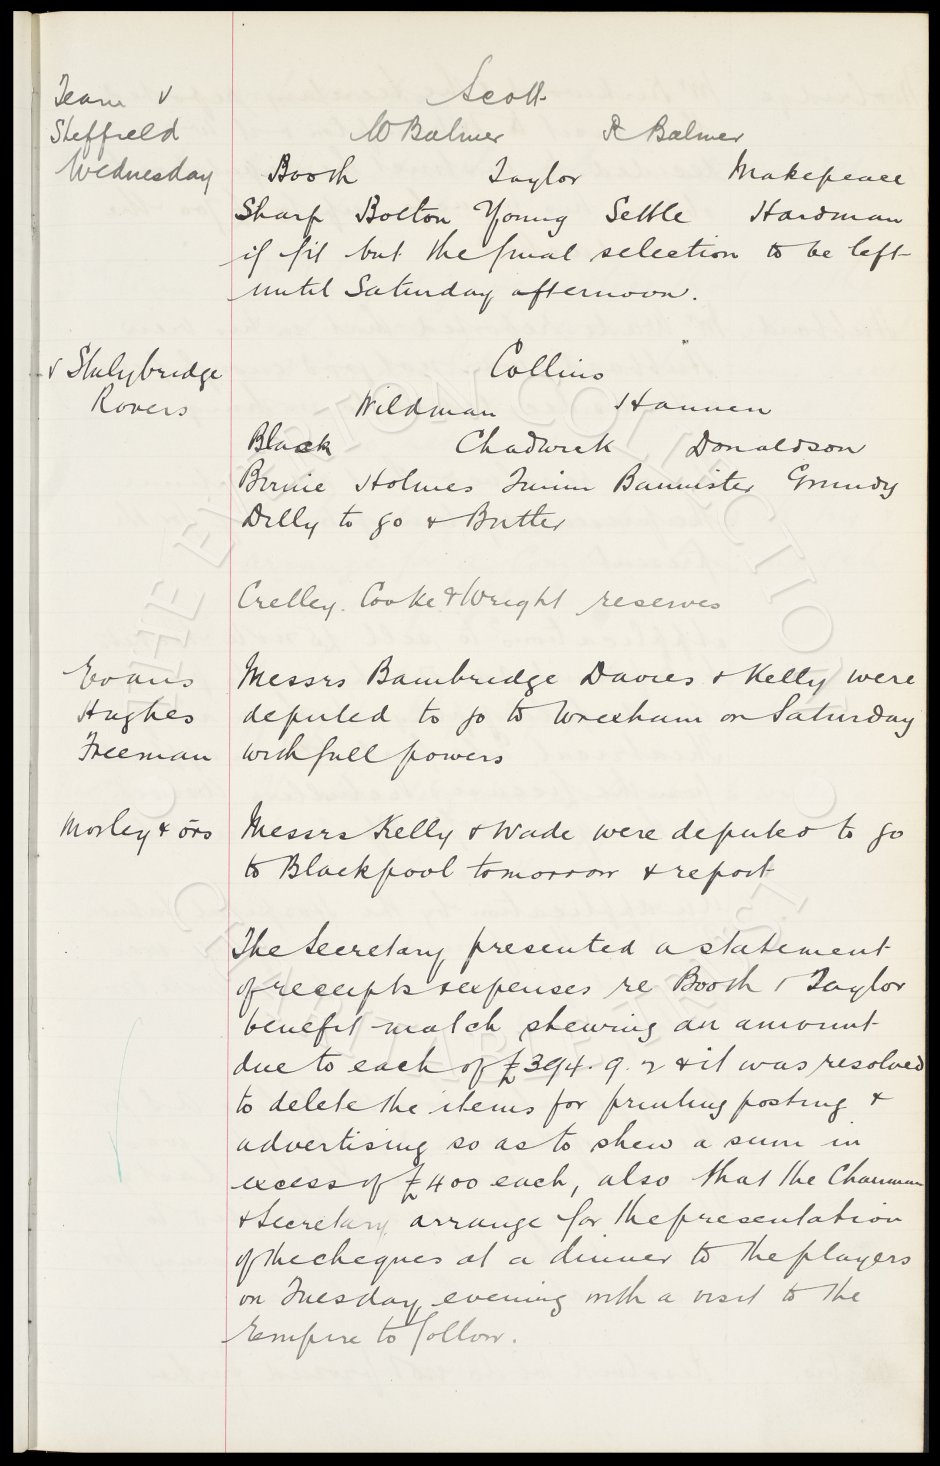 Team v
Sheffield
Wednesday
Scott
W Balmer R Balmer
Booth Taylor Makepeace
Sharp Bolton Young Settle Hardman
if fit but the final selection to be left
until Saturday afternoon.
v Stalybridge
Rovers
Collins
Wildman Hannen
Black Chadwick Donaldson
Birnie Holmes Bannister Grundy
Dilly to go & Butler
Crelley. Cooke & Wright reserves
Evans
Hughes
Freeman
Messrs Bambridge Davies & Kelly were
deputed to go to Wrexham on Saturday
with full powers
Morley & ors
Messrs Kelly & Wade were deputed to go
to Blackpool tomorrow & report
The Secretary presented a statement
of receipts & expenses re Booth & Taylor
benefit match shewing an amount
due to each of £394. 9. 2 & it was resolved
to delete the items for printing posting &
advertising so as to shew a sum in
excess of £400 each, also that the Chairman
& Secretary arrange for the presentation
of the cheques at a dinner to the players
on Tuesday evening with a visit to the
Empire to follow.
THE EVERTON COLLECTION